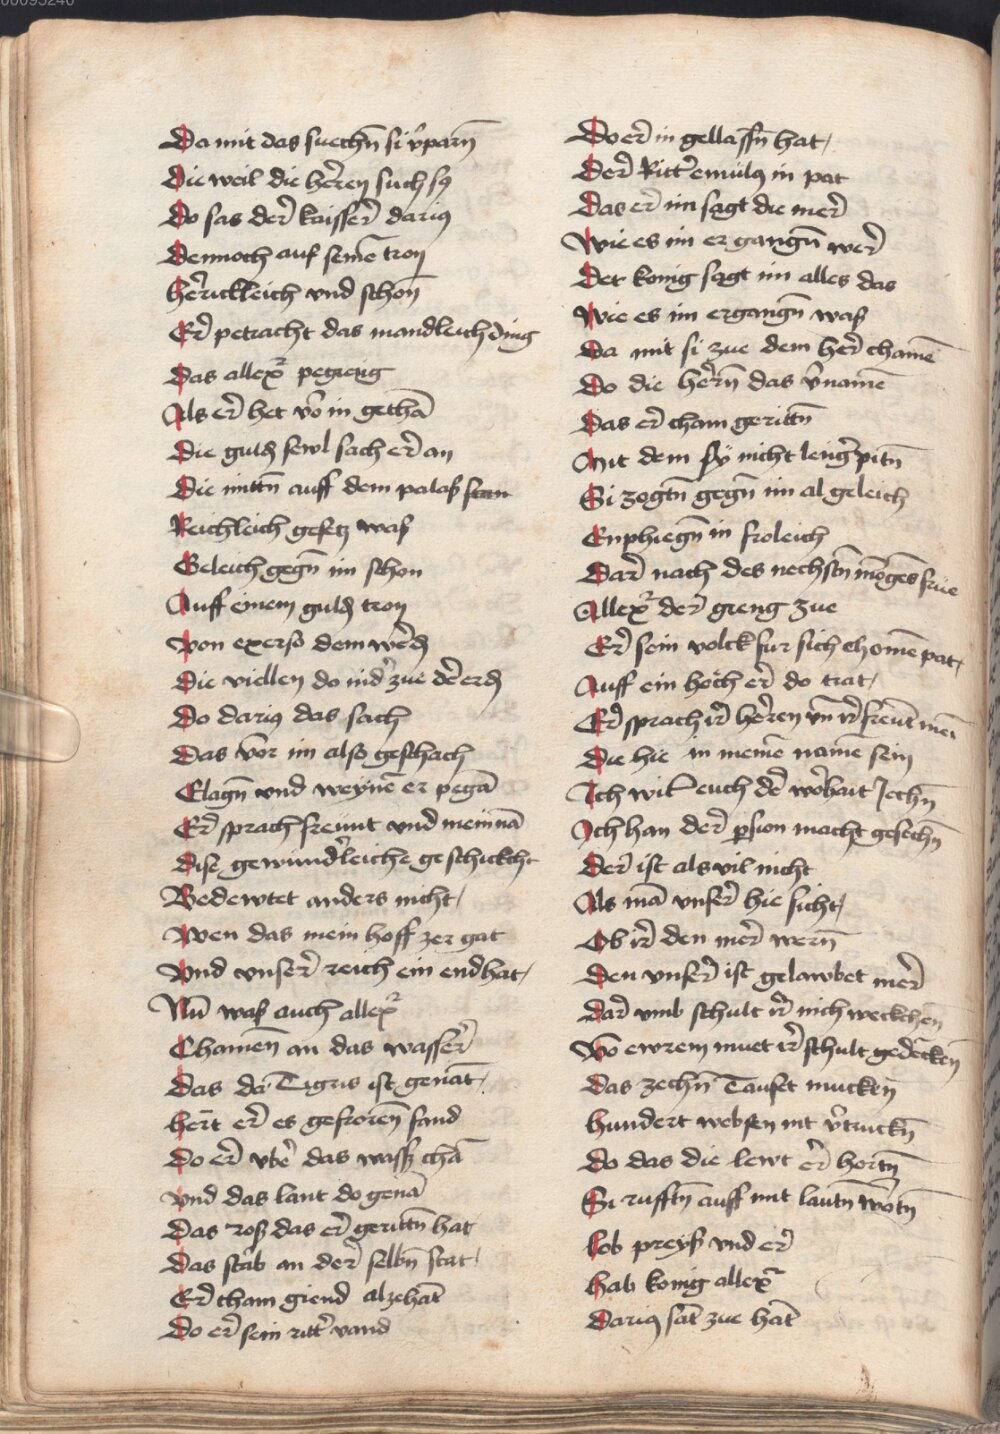 00095240
Da mit das suechñ si v̄parñ
Die weil die herren such sy
Do sas der kaisser darius
Dennoch auf seinē tron
herickleich vnd schon
Er petracht das mandleich ding
Das allexr pegieng
Als er het vō in gethā
Die guldn sewl sach er an
Die mittñ auff dem palaß stan
Reichleich gesetz waß
Geleich gegñ im schon
Auff einem guldn tron
Von exerso dem werdn
Die viellen do nider zue der erdn
Do darius das sach
Das vor im also geschach
Clagñ vnd weynē er pegā
Er sprach freunt vnd mein mā
Dise gewunderleiche geschickcht
Bedewtet anders nicht
Wen das mein hoff zer gat
Vnd vnser reich ein end hat
Nū waß auch allexr
Chamen an das wasser
Das da Tigris ist genāt
hert er es gefroren fand
Do er vber das wasser chā
vnd das lant do genā
Das roß das er gerittñ hat
Das starb an der selbñ stat
Er cham giend alzehāt
Do er sein ritter vand
Do er in gellassñ hat
Der Ritter emulus in pat
Das er im sagt die mer
Wie es im er gangñ wer
Der konig sagt im alles das
Wie es im ergangñ waß
Da mit si zue dem her chamē
Do die herrñ das v̄namē
Das er cham gerittñ
Mit dem sy nicht lenger pitñ
Si zogtñ gegñ im al geleich
Enphiegñ in froleich
Dar nach des nechstñ morges frue
Allexr der gieng zue
Er sein volck fur sich chomē pat
Auff ein hoch er do trat
Er sprach ir herren vñ ir freūt mein
Die hie in meinē namē sein
Ich wil euch der worhait Jechñ
Ich han der persion macht gesechñ
Der ist als vil nicht
Als mā vnser hie sicht
Ob ir den mer wern
Den vnser ist gelawbet mer
Dar vmb schult ir nich weckchen
Vō ewrem muet ir schult gedēcken
Das zechñ Tausēt mucken
hundert websen nit v̄truckñ
Do das die lewt er hortñ
Si rufftñ auff mit lautñ wortñ
lob preyß vnd er
hab konig allexr
Darius sāt zue hāt